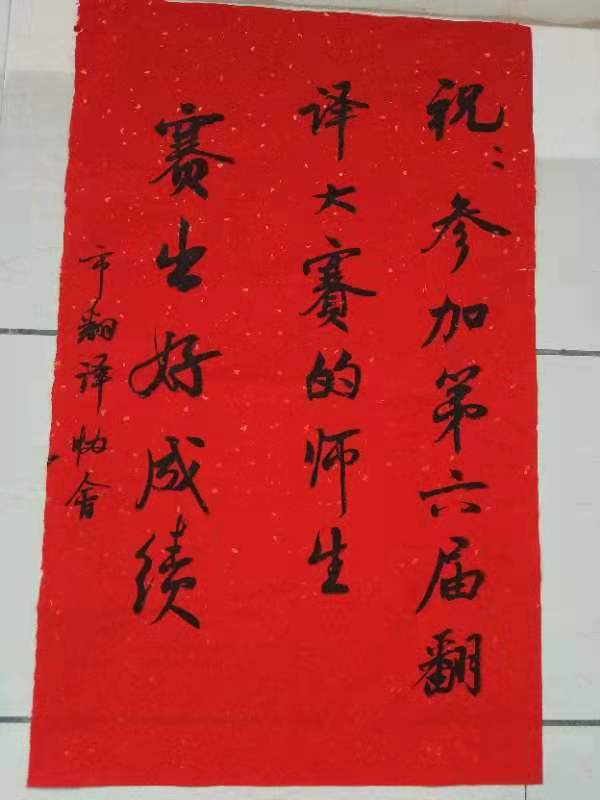 祝:参加第六届翻
译大赛的师生
赛出好成绩
市翻译协会